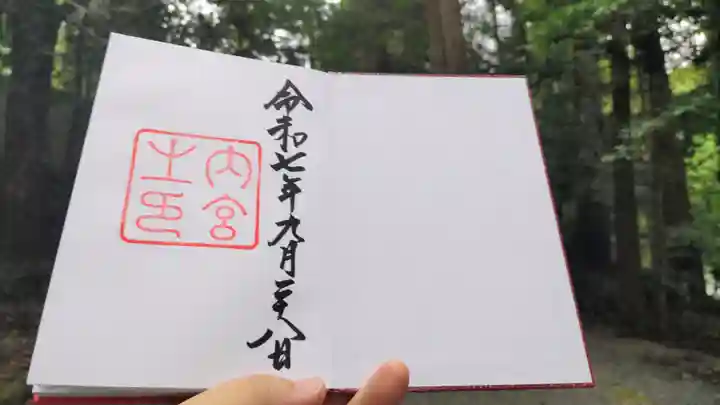 令和七年九月二十八日
内宮
之印